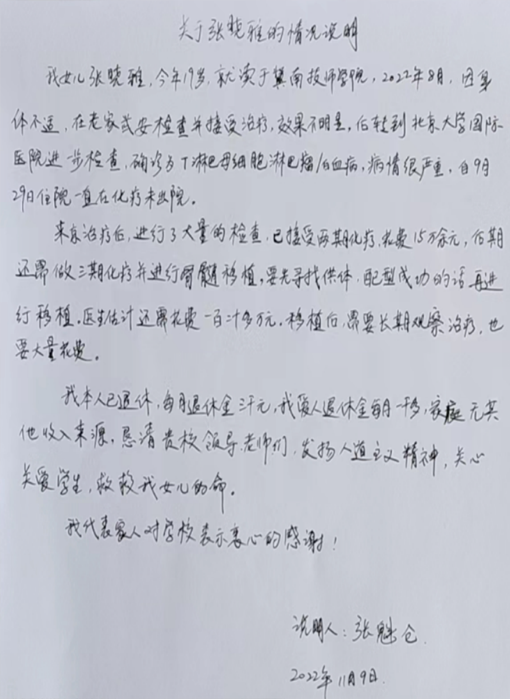 关于张晓雅的情况说明
我女儿张晓雅，今年19岁，就读于冀南技师学院，2022年8月，因身
体不适，在老家武安检查并接受治疗，效果不明显，后转到北京大学国际
医院进一步检查，确诊为T淋巴母细胞淋巴瘤/白血病，病情很严重，自9月
29日住院一直在化疗未出院。
来京治疗后，进行了大量的检查，已接受两期化疗，花费15万余元，后期
还需做三期化疗并进行骨髓移植，要先寻找供体，配型成功的话，再进
行移植。医生估计还需花费一百多万元，移植后，需要长期观察治疗，也
要大量花费。
我本人已退休，每月退休金三千元，我爱人退休金每月一千多，家庭无其
他收入来源，恳请贵校领导、老师们，发扬人道主义精神，关心
关爱学生，救救我女儿的命。
我代表家人对学校表示衷心的感谢！
说明人：张魁仓
2022年11月9日